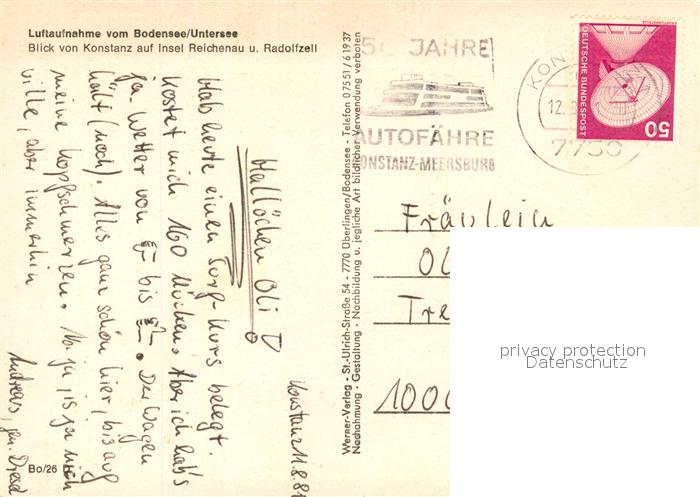 Luftaufnahme vom Bodensee/Untersee
Blick von Konstanz auf Insel Reichenau u. Radolfzell
Konstanz 11.8.81
Hallöchen Oli!
Hab heute einen Surf-Kurs belegt.
Kostet mich 160 Mücken. Aber ich hab's
ja. Wetter von bis. Der Wagen
hält (noch). Alles ganz schön hier, bis auf
meine Kopfschmerzen. Na ja, is ja nich
ville, aber immerhin
Andreas, gen.
Bo/26
Werner-Verlag - St.-Ulrich-Straße 54 - 7770 Überlingen/Bodensee - Telefon 07551/61937
Nachahmung - Gestaltung - Nachbildung u. jegliche Art bildlicher Verwendung verboten
50 JAHRE
AUTOFÄHRE
KONSTANZ-MEERSBURG
KON
12.
7750
DEUTSCHE BUNDESPOST
50
Fräulein
Ol
Tre
1000
privacy protection
Datenschutz